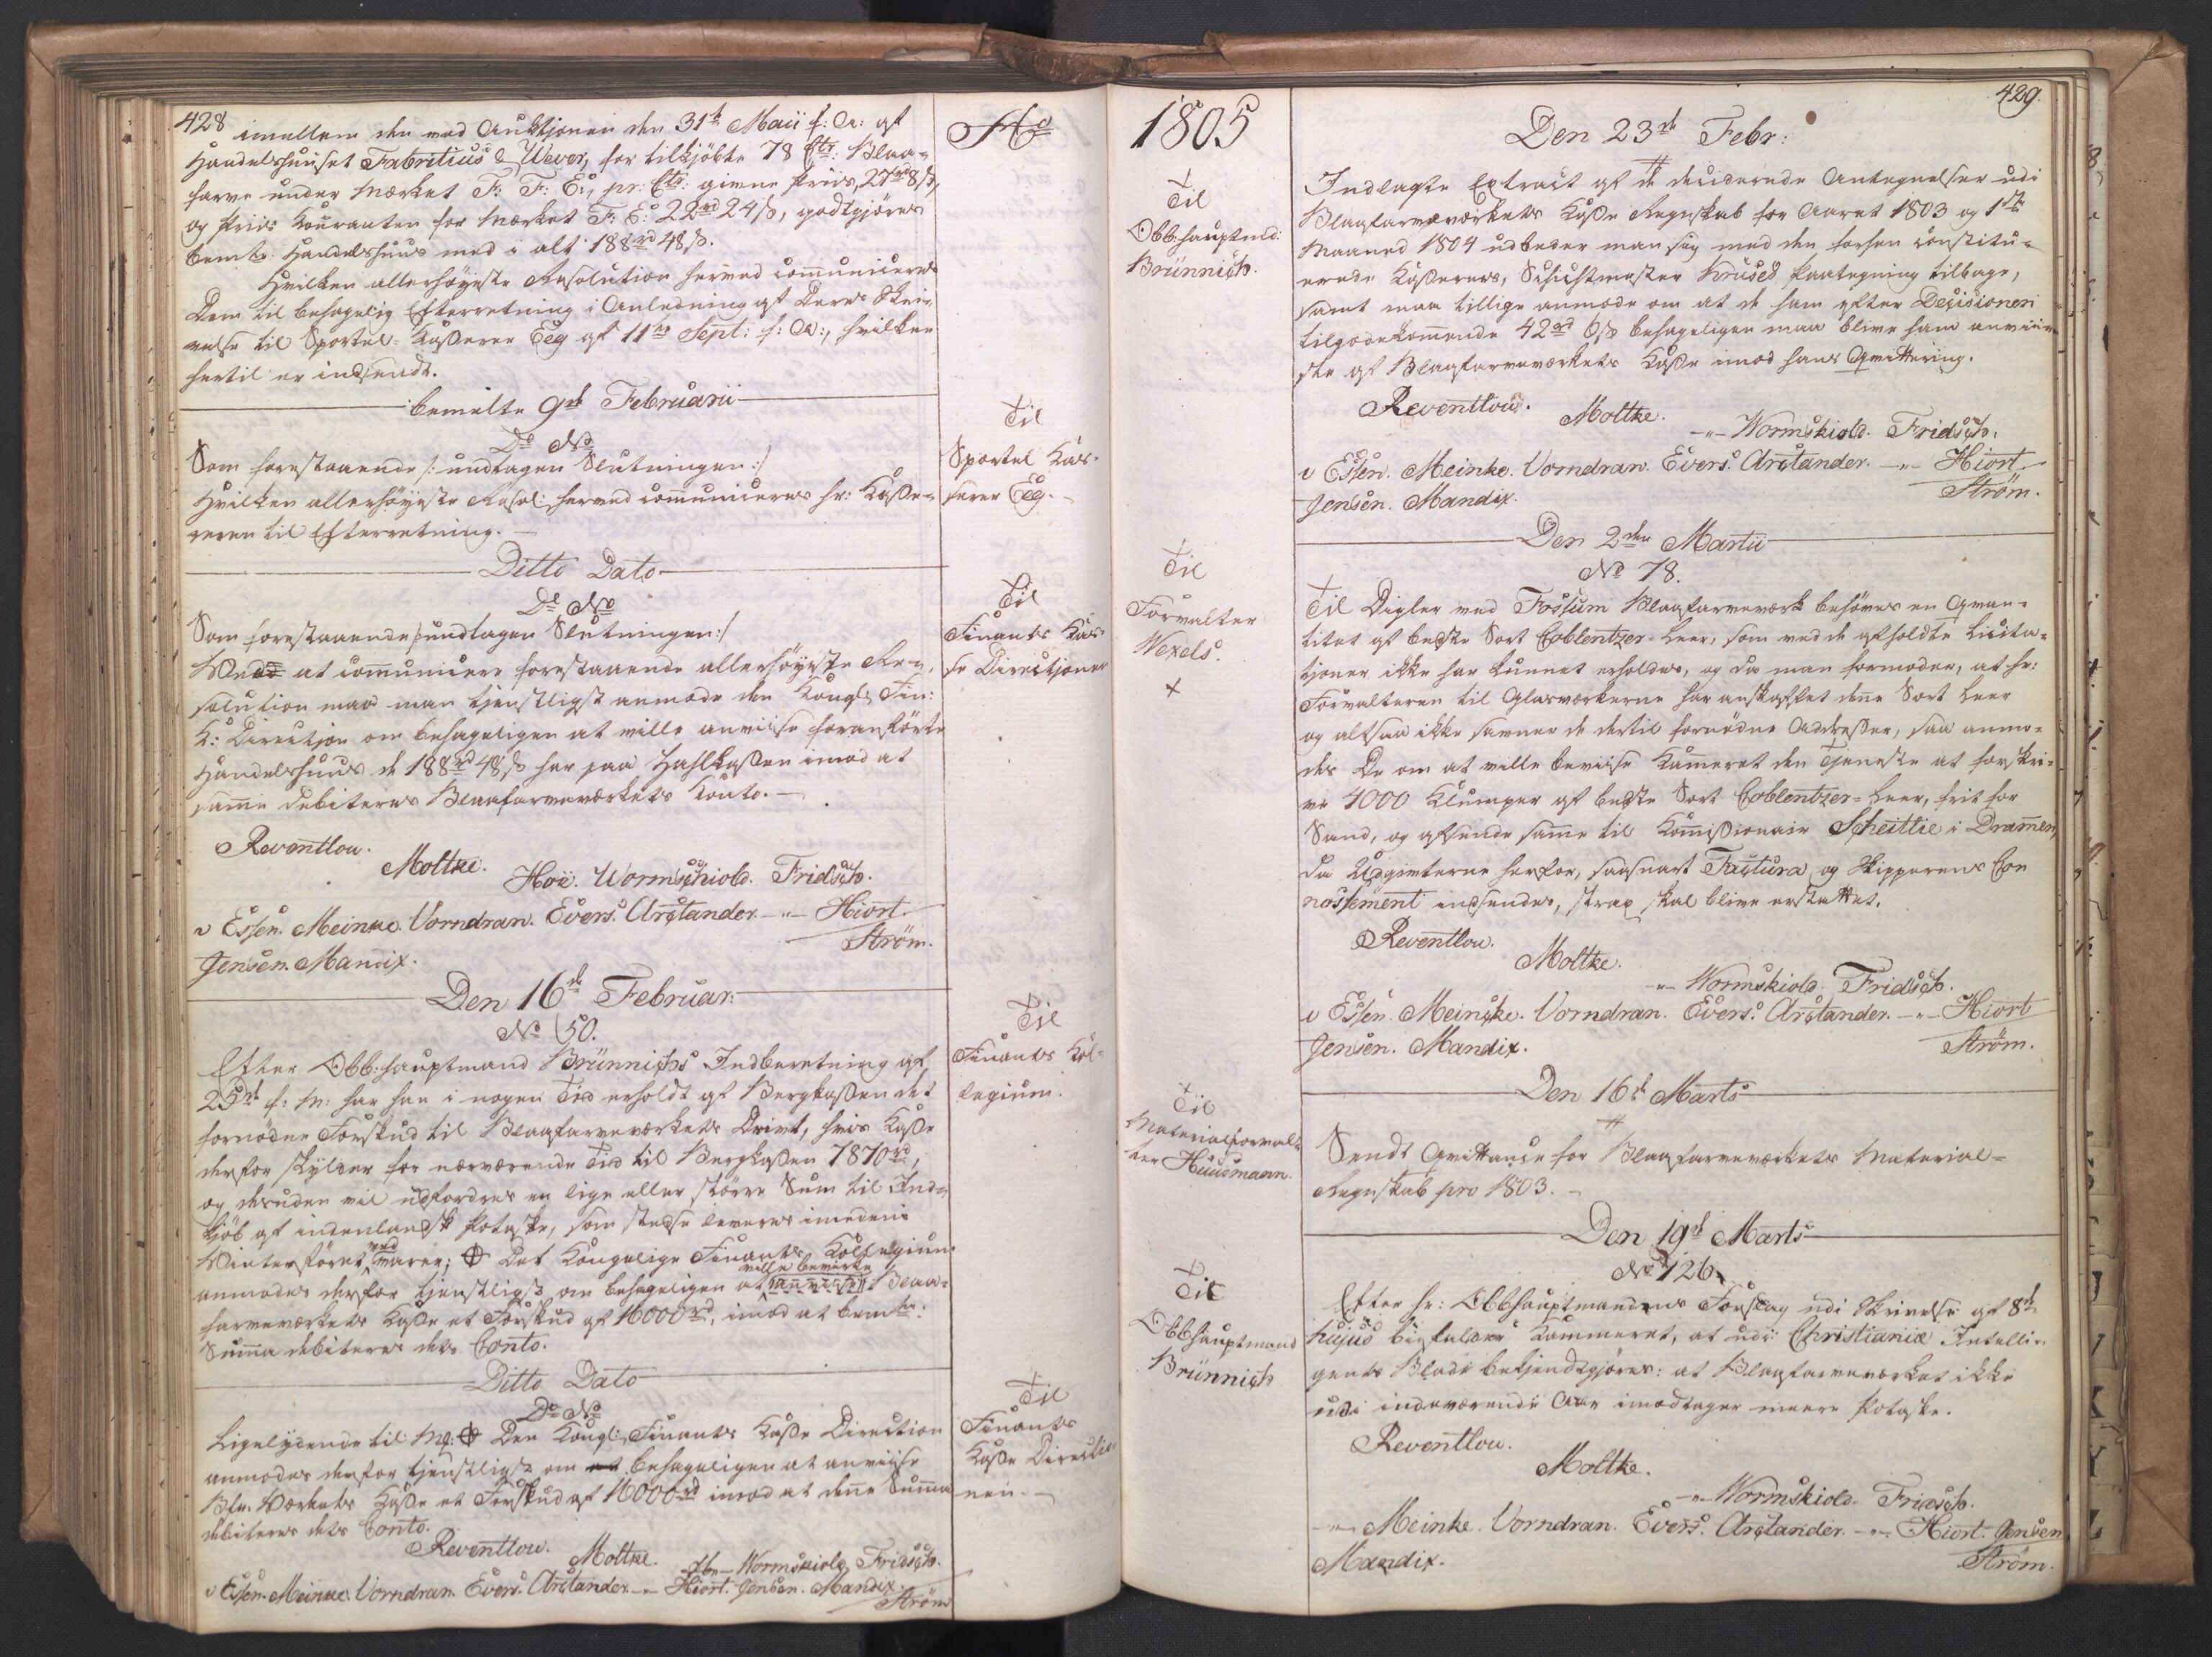 428
imellem den ved Auktjonen den 31te Maii f: A: af
Handelshuuset Fabritius & Wever, for tilkjöbte 78 Ctr: Blaa-
farve under Mærket F: F: E:, pr: Ctr: givne Priis, 27rd 8 s,
og Priis Kouranten for Mærket F: E: 22rd 24 s, godtgjöres
bemte Handelshuus med i alt 188rd 48 s.
Hvilken allerhöyeste Resolution herved communiceres
Dem til behagelig Efterretning i Anledning af Deres Skri-
velse til Sportel-Kasserer Eeg af 11te Sept: f: A:, hvilken
hertil er indsendt.
bemelte 9de Februarii
Do No
Som forestaaende /: undtagen Slutningen :/
Hvilken allerhöyeste Resol: herved communiceres Hr: Kasse-
reren til Efterretning.
Ditto Dato
Do No
Som forestaaende /: undtagen Slutningen :/
Ved at communicere forestaaende allerhöyeste Re-
solution maa man tjenstligst anmode den Kongl: Fin:
K: Direktjon om behageligen at ville anviise foranförte
Handelshuus de 188rd 48 s her paa Zahlkassen imod at
samme debiteres Blaafarveværkets Konto.
Reventlou.
Moltke. Hoë. Wormskiold. Fridsch.
v Essen. Meinke. Vorndran. Evers. Arctander. -"- Hiort.
Jensen. Mandix.
Ström.
Den 16de Februar:
No 50.
Efter Obb:hauptmand Brünnichs Indberetning af
25de f: M: har han i nogen Tid erholdt af Bergkassen det
fornödne Forskud til Blaafarveværkets Drivt, hvis Kasse
derfor skylder for nærværende Tid til Bergkassen 7870rd,
og desuden vil udfordres en lige eller större Sum til Ind-
kjöb af indenlandsk Potaske, som stedse leveres imedens
Vinterföret ved varer; Det Kongelige Finants Kollegium
ville bevirke
anmodes derfor tjenstligst om behageligen at anviise Blaa-
farveværkets Kasse et Forskud af 16000rd, imod at bemte
Summa debiteres dets Conto.
Ditto Dato
Do No
Ligelydende til Mk: Den Kongl: Finants Kasse Direction
anmodes derfor tjenstligst om at behageligen at anviise
Bfv. Værkets Kasse et Forskud af 16000rd imod at denne Summa
debiteres dets Conto.
Reventlou. Moltke. -"- Wormskiold. Fridsch.
v Essen. Meinke. Vorndran. Evers. Arctander. -"- Hiort. Jensen. Mandix.
Ström
Ao
Til
Sportel Kas-
serer Eeg.
Til
Finants Kas-
se Directjonen
Til
Finants Kol-
legium.
Til
Finants
Kasse Directio-
nen.
1805
Til
Obb:hauptmd:
Brünnich.
Til
Forvalter
Wexels.
x
x
Til
Materialforval-
ter Huusmann.
Til
Obbhauptmand
Brünnich
429.
Den 23de Febr:
#
Indlagte Extract af de deciderede Antegnelser udi
Blaafarveværkets Kasse Regnskab for Aaret 1803 og 1ste
Maaned 1804 udbeder man sig med den forhen constitu-
erede Kasserers, Schichtmester Kruses Paategning tilbage,
samt maa tillige anmode om at de ham efter Decisionen
tilgodekommende 42rd 6 s behageligen maa blive ham anviis-
ste af Blaafarveværkets Kasse imod hans Qvittering.
Reventlou. Moltke.
-"- Wormskiold. Fridsch.
v Essen. Meinke. Vorndran. Evers. Arctander. -"- Hiort.
Jensen. Mandix.
Ström.
Den 2den Martii
No 78.
Til Digler ved Fossum Blaafarveværk behöves en Qvan-
titet af bedste Sort Coblentzer-Leer, som ved de afholdte Licita-
tjoner ikke har kunnet erholdes, og da man formoder, at Hr:
Forvalteren til Glasværkerne har anskaffet denne Sort Leer
og altsaa ikke savner de dertil fornödne Addresser, saa anmo-
des De om at ville beviise Kammeret den Tjeneste at forskri-
ve 4000 Klumper af bedste Sort Coblentzer-Leer, frit for
Sand, og afsende samme til Kommissionair Scheitlie i Drammen,
da Udgivterne herfor, saasnart Factura og Skipperens Con
nossement indsendes, strax skal blive erstattet.
Reventlou.
Moltke.
-"- Wormskiold. Fridsch.
v Essen. Meincke. Vorndran. Evers. Arctander. -"- Hiort
Jensen. Mandix.
Ström.
Den 16de Marts
#
Sendt Qvittance for Blaafarveværkets Material-
Regnskab pro 1803.
Den 19de Marts
No 126.
Efter Hr: Obbhauptmandens Forslag udi Skrivelse af 8de
hujus bifalder Kammeret, at udi Christianiæ Intelli-
gents Blade bekjendtgjöres: at Blaafarveværket ikke
udi indeværende Aar imodtager meere Potaske.
Reventlou.
Moltke.
-"- Wormskiold. Fridsch.
-"- Meinke. Vorndran. Evers. Arctander. -"- Hiort. Jensen
Mandix.
Ström.